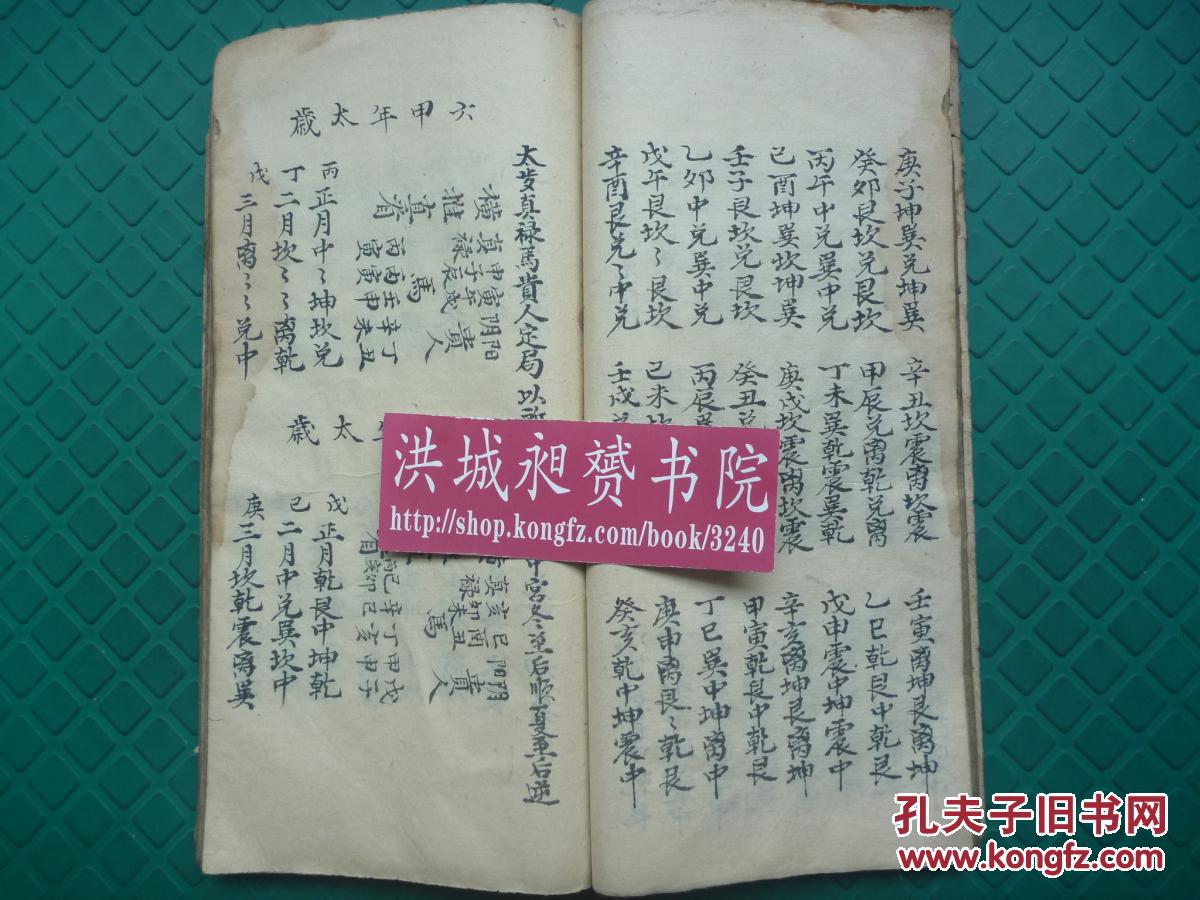 庚子坤巽兑坤巽
癸卯艮坎兑艮坎
丙午中兑巽中兑
己酉坤巽坎坤巽
壬子艮坎兑艮坎
乙卯中兑巽中兑
戊午艮坎〻艮坎
辛酉艮兑〻中兑
辛丑坎震离坎震
甲辰兑离乾兑离
丁未巽乾震巽乾
庚戌坎震离坎震
癸丑兑
丙辰巽
己未坎
壬戌
壬寅离坤艮离坤
乙巳乾艮中乾艮
戊申震中坤震中
辛亥离坤艮离坤
甲寅乾艮中乾艮
丁巳巽中坤离中
庚申离艮〻乾艮
癸亥乾中坤震中
太岁真禄馬貴人定局 以
中宫冬至后顺夏至后逆
六甲年太歲
横真
推真看
申子辰
寅午戌
禄馬
阴阳貴人
丙丙壬辛丁
寅寅申未丑
丙正月中〻坤坎兑
丁二月坎〻〻离乾
戊三月离〻〻兑中
太歲
真禄馬
亥卯未
巳酉丑
阳阴貴人
看
己辛丁甲戊
卯巳亥申子
戊正月乾艮中坤乾
己二月中兑巽坎中
庚三月坎乾震离巽
洪城昶赟书院
http://shop.kongfz.com/book/3240
孔夫子旧书网
www.kongfz.com